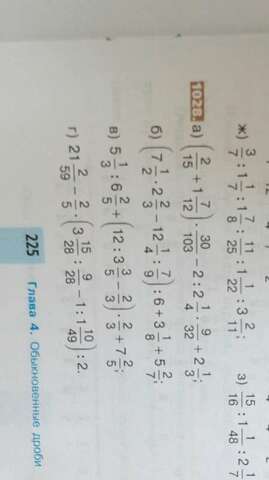 ж) 3/7 : 1 1/7 : 1 7/8 · 11/25 : 1 1/22 : 3 2/11
з) 15/16 : 1 1/48 : 2
1028. а) (2/15 + 1 7/12) · 30/103 − 2 : 2 1/4 · 9/32 + 2 1/3;
б) (7 1/2 · 2 2/3 − 12 1/4 : 7/9) : 6 + 3 1/8 + 5 2/7;
в) 5 1/3 : 6 2/5 + (12 : 3 3/5 − 2/3) · 2/3 + 7 2/5;
г) 21 2/59 − 2/5 · (3 15/28 : 9/28 − 1 : 1 10/49) : 2.
225 Глава 4. Обыкновенные дроби